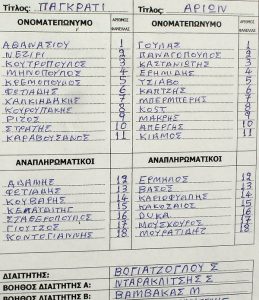 Τίτλος: ΠΑΓΚΡΑΤΙ Τίτλος: ΑΡΙΩΝ
ΟΝΟΜΑΤΕΠΩΝΥΜΟ ΑΡΙΘΜΟΣ ΦΑΝΕΛΛΑΣ ΟΝΟΜΑΤΕΠΩΝΥΜΟ ΑΡΙΘΜΟΣ ΦΑΝΕΛΛΑΣ
ΑΘΑΝΑΣΙΟΥ 1 ΓΟΥΛΑΣ 1
ΝΕΖΙΡΙ 2 ΠΑΝΑΓΟΠΟΥΛΟΣ 2
ΚΟΥΤΡΟΠΟΥΛΟΣ 3 ΚΑΣΤΑΝΙΩΤΗΣ 3
ΜΗΝΟΠΟΥΛΟΣ 4 ΕΡΜΙΔΗΣ 4
ΚΡΕΜΟΠΟΥΛΟΣ 5 ΤΣΙΑΒΟ 5
ΦΕΤΙΔΗΣ 6 ΚΑΝΤΖΗΣ 6
ΧΑΛΚΙΔΑΚΗΣ 7 ΜΠΕΡΜΠΕΡΗΣ 7
ΚΟΥΡΟΥΠΑΚΗΣ 8 ΚΟΣΤ 8
ΡΙΖΟΣ 9 ΜΑΚΡΗΣ 9
ΣΤΡΑΤΗΣ 10 ΑΠΕΡΓΗΣ 10
ΚΑΡΑΒΟΥΣΑΝΟΣ 11 ΚΙΒΜΟΣ 11
ΑΝΑΠΛΗΡΩΜΑΤΙΚΟΙ ΑΝΑΠΛΗΡΩΜΑΤΙΚΟΙ
ΑΔΑΜΗΣ 12 ΕΡΜΗΛΟΣ 12
ΦΕΤΙΔΗΣ 13 ΒΑΣΟΣ 13
ΚΟΥΒΑΡΗΣ 14 ΚΑΡΙΟΦΥΛΛΗΣ 14
15 ΚΑΚΟΣΑΙΟΣ 15
ΣΤΑΘΕΡΟΠΟΥΛΟΣ 16 ΔΥΚΑ 16
ΓΙΟΥΤΣΟΣ 17 ΜΟΥΣΚΟΥΡΟΣ 17
ΚΟΝΤΟΓΙΑΝΝΗΣ 18 ΜΟΥΡΑΤΙΔΗΣ 18
ΔΙΑΙΤΗΤΗΣ: ΒΟΓΙΑΤΖΟΓΛΟΥ Σ
ΒΟΗΘΟΣ ΔΙΑΙΤΗΤΗ Α: ΝΤΑΡΑΚΛΙΤΣΗΣ Σ
ΒΟΗΘΟΣ ΔΙΑΙΤΗΤΗ Β: ΒΑΜΒΑΚΑΣ Μ